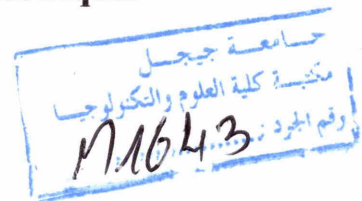 جامعة جيجل
مكتبة كلية العلوم والتكنولوجيا
رقم الجرد :
M1643